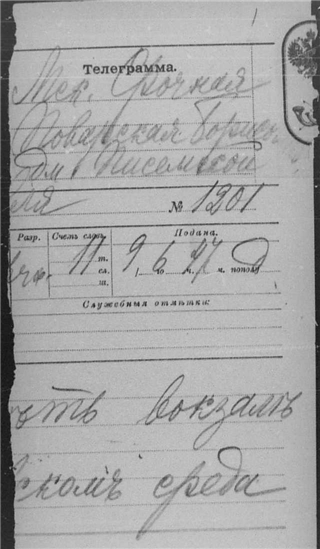 Телеграмма.
Мск. Срочная
Поварская Борисо
дм Писемской
ля
№ 1201
Разр. Счетъ словъ. Подана.
11 т. 9, 6 м. 47 м. пополу Д
сл.
Служебныя отмѣтки:
ютъ вокзалъ
скомъ среда